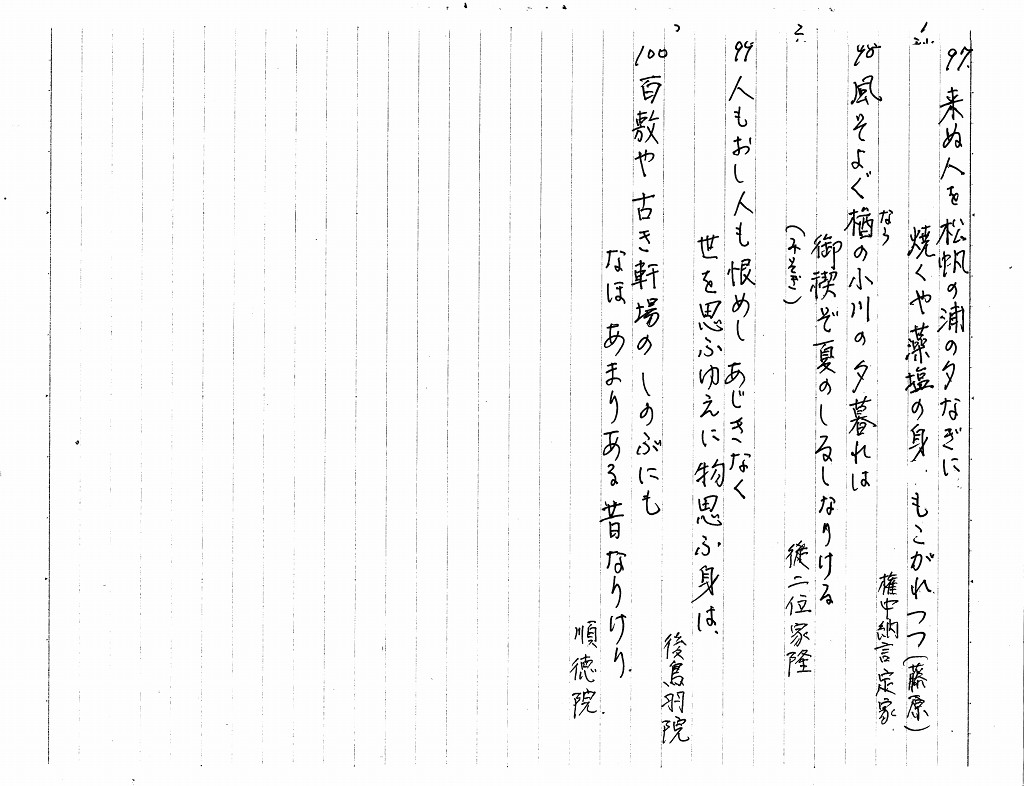 97. 来ぬ人を松帆の浦の夕なぎに
焼くや藻塩の身.もこがれつつ(藤原)
権中納言定家
98 風そよぐ楢の小川の夕暮れは
なら
御禊ぞ夏のしるしなりける
(みそぎ)
従二位家隆
99 人もおし人も恨めしあじきなく
世を思ふゆえに物思ふ身は、
後鳥羽院
100 百敷や古き軒場のしのぶにも
なほあまりある昔なりけり.
順徳院.